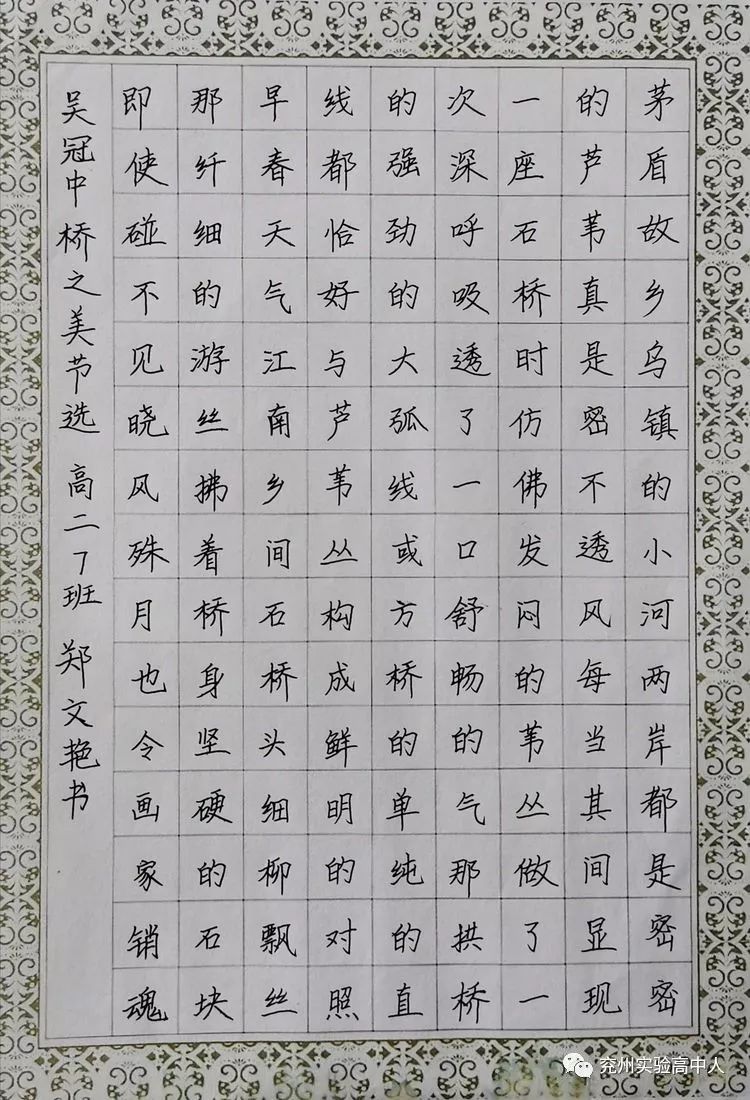 茅盾故乡乌镇的小河两岸都是密密
的芦苇真是密不透风每当其间显现
一座石桥时仿佛发闷的苇丛做了一
次深呼吸透了一口舒畅的气那拱桥
的强劲的大弧线或方桥的单纯的直
线都恰好与芦苇丛构成鲜明的对照
早春天气江南乡间石桥头细柳飘丝
那纤细的游丝拂着桥身坚硬的石块
即使碰不见晓风残月也令画家销魂
吴冠中桥之美节选 高二7班 郑文艳书
兖州实验高中人